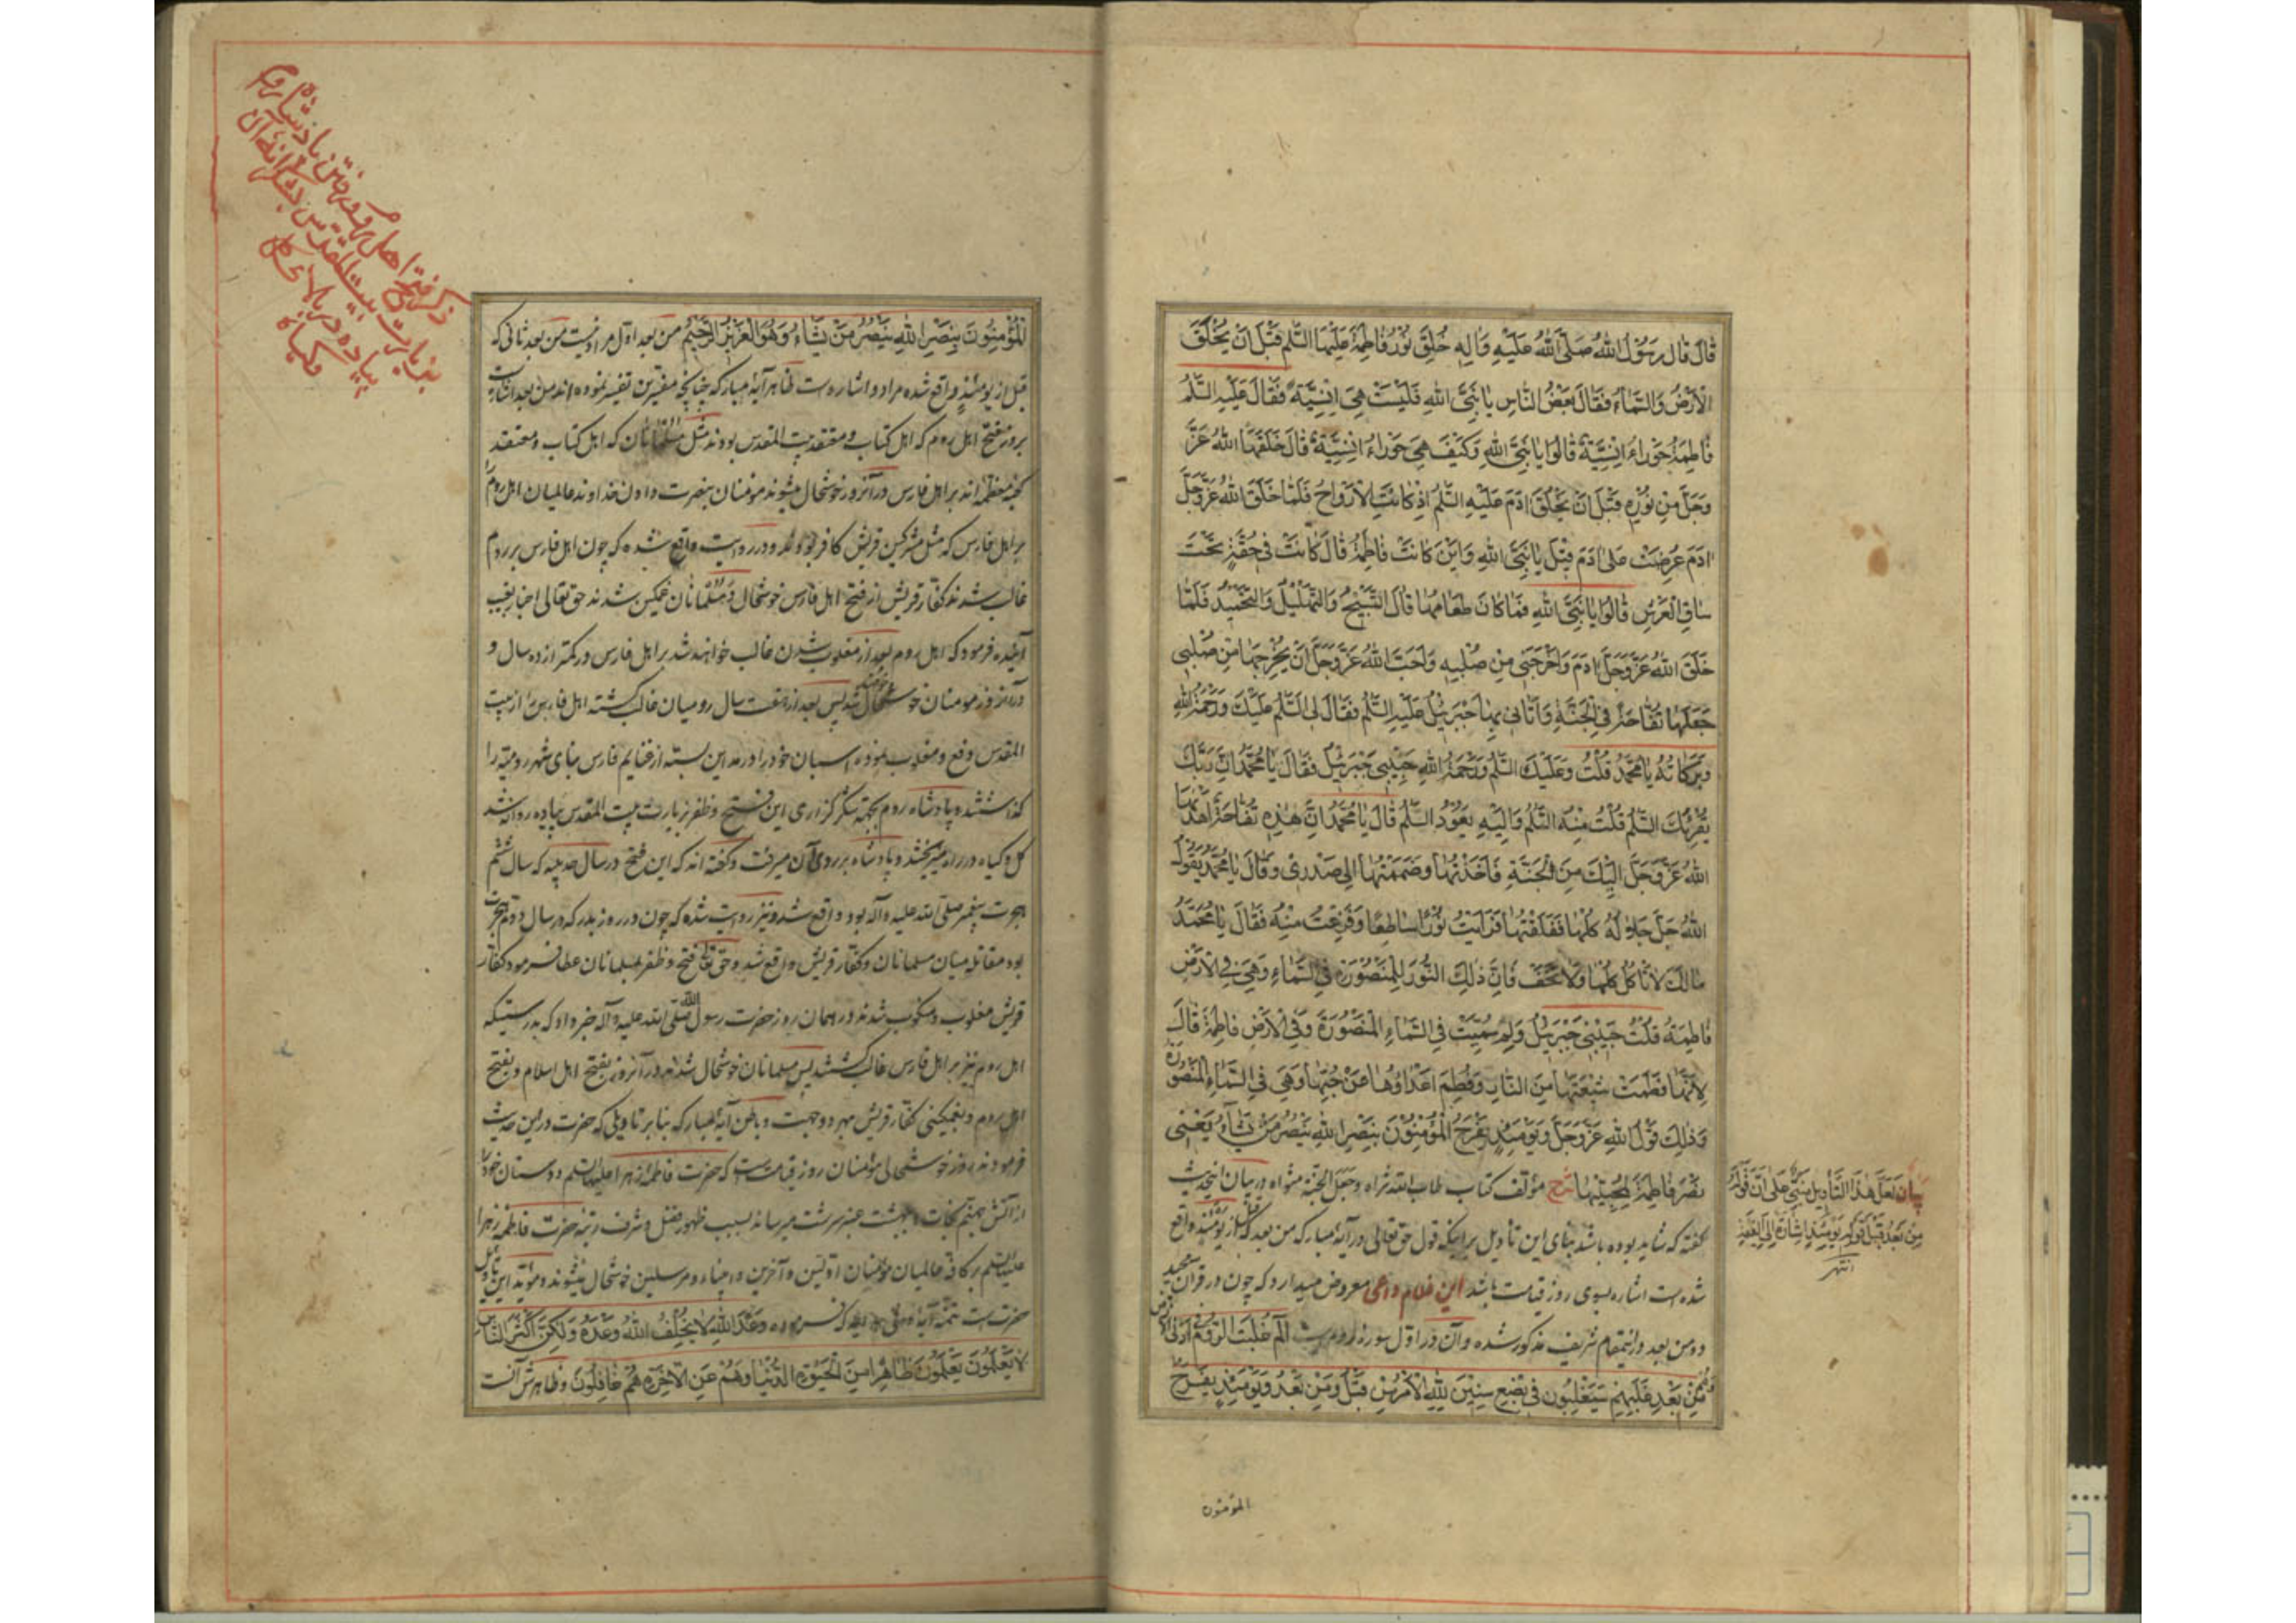 قَالَ قَالَ رَسُولُ اللهِ صَلَّى اللهُ عَلَيْهِ وَاٰلِهِ خُلِقَ نُورُ فَاطِمَةَ عَلَيْهَا السَّلٰمُ قَبْلَ اَنْ يُخْلَقَ
الْاَرْضُ وَالسَّمَاءُ فَقَالَ بَعْضُ النَّاسِ يَا نَبِيَّ اللهِ فَلَيْسَتْ هِيَ اِنْسِيَّةً فَقَالَ عَلَيْهِ السَّلٰمُ
فَاطِمَةُ حَوْرَاءُ اِنْسِيَّةٌ قَالُوا يَا نَبِيَّ اللهِ وَكَيْفَ هِيَ حَوْرَاءُ اِنْسِيَّةٌ قَالَ خَلَقَهَا اللهُ عَزَّ
وَجَلَّ مِنْ نُورِهِ قَبْلَ اَنْ يَخْلُقَ اٰدَمَ عَلَيْهِ السَّلٰمُ اِذْ كَانَتِ الْاَرْوَاحُ فَلَمَّا خَلَقَ اللهُ عَزَّ وَجَلَّ
اٰدَمَ عُرِضَتْ عَلٰى اٰدَمَ قِيْلَ يَا نَبِيَّ اللهِ وَاَيْنَ كَانَتْ فَاطِمَةُ قَالَ كَانَتْ فِي حُقَّةٍ تَحْتَ
سَاقِ الْعَرْشِ قَالُوا يَا نَبِيَّ اللهِ فَمَا كَانَ طَعَامُهَا قَالَ التَّسْبِيْحُ وَالتَّهْلِيْلُ وَالتَّحْمِيْدُ فَلَمَّا
خَلَقَ اللهُ عَزَّ وَجَلَّ اٰدَمَ وَاَخْرَجَنِي مِنْ صُلْبِهِ وَاَحَبَّ اللهُ عَزَّ وَجَلَّ اَنْ يُخْرِجَهَا مِنْ صُلْبِي
جَعَلَهَا تُفَّاحَةً فِي الْجَنَّةِ وَاَتَانِي بِهَا جَبْرَئِيْلُ عَلَيْهِ السَّلٰمُ فَقَالَ لِي السَّلٰمُ عَلَيْكَ وَرَحْمَةُ اللهِ
وَبَرَكَاتُهُ يَا مُحَمَّدُ قُلْتُ وَعَلَيْكَ السَّلٰمُ وَرَحْمَةُ اللهِ حَبِيْبِي جَبْرَئِيْلُ فَقَالَ يَا مُحَمَّدُ اِنَّ رَبَّكَ
يُقْرِئُكَ السَّلٰمَ قُلْتُ مِنْهُ السَّلٰمُ وَاِلَيْهِ يَعُوْدُ السَّلٰمُ قَالَ يَا مُحَمَّدُ اِنَّ هٰذِهِ تُفَّاحَةٌ اَهْدَاهَا
اللهُ عَزَّ وَجَلَّ اِلَيْكَ مِنَ الْجَنَّةِ فَاَخَذْتُهَا وَضَمَمْتُهَا اِلٰى صَدْرِي وَقَالَ يَا مُحَمَّدُ يَقُوْلُ
اللهُ جَلَّ جَلَالُهُ كُلْهَا فَفَلَقْتُهَا فَرَاَيْتُ نُوْرًا سَاطِعًا وَفَزِعْتُ مِنْهُ فَقَالَ يَا مُحَمَّدُ
مَا لَكَ لَا تَاْكُلُ كُلْهَا وَلَا تَخَفْ فَاِنَّ ذٰلِكَ النُّوْرَ لِلْمَنْصُوْرَةِ فِي السَّمَاءِ وَهِيَ فِي الْاَرْضِ
فَاطِمَةُ قُلْتُ حَبِيْبِي جَبْرَئِيْلُ وَلِمَ سُمِّيَتْ فِي السَّمَاءِ الْمَنْصُوْرَةَ وَفِي الْاَرْضِ فَاطِمَةَ قَالَ
لِاَنَّهَا فَطَمَتْ شِيْعَتَهَا مِنَ النَّارِ وَفُطِمَ اَعْدَاؤُهَا عَنْ حُبِّهَا وَهِيَ فِي السَّمَاءِ الْمَنْصُوْرَةُ
وَذٰلِكَ قَوْلُ اللهِ عَزَّ وَجَلَّ وَيَوْمَئِذٍ يَفْرَحُ الْمُؤْمِنُوْنَ بِنَصْرِ اللهِ يَنْصُرُ مَنْ يَشَاءُ يَعْنِي
نَصْرَ فَاطِمَةَ لِمُحِبِّيْهَا شرح مؤلف كتاب طاب الله ثراه وجعل الجنة مثواه در بيان اين حديث
گفته كه شايد بوده باشد بناى اين تأويل بر اينكه قول حق تعالى در آيه مباركه من بعد كه قبل از يومئذ واقع
شده است اشاره بسوى روز قيامت باشد اين غلام داعى معروض ميدارد كه چون در قرآن مجيد
ومن بعد در اينمقام شريف مذكور شده وآن در اول سوره روم است الٓمٓ غُلِبَتِ الرُّوْمُ فِي اَدْنَى الْاَرْضِ
وَهُمْ مِنْ بَعْدِ غَلَبِهِمْ سَيَغْلِبُوْنَ فِي بِضْعِ سِنِيْنَ لِلّٰهِ الْاَمْرُ مِنْ قَبْلُ وَمِنْ بَعْدُ وَيَوْمَئِذٍ يَفْرَحُ
المؤمنون
بيان لَعَلَّ هٰذَا التَّأْوِيْلَ مَبْنِيٌّ عَلٰى اَنَّ قَوْلَهُ
مِنْ بَعْدُ قَبْلَ قَوْلِهِ يَوْمَئِذٍ اِشَارَةٌ اِلَى الْقِيٰمَةِ
انتهى
الْمُؤْمِنُوْنَ بِنَصْرِ اللهِ يَنْصُرُ مَنْ يَشَاءُ وَهُوَ الْعَزِيْزُ الرَّحِيْمُ من بعد اول مراد نيست من بعد ثانى كه
قبل از يومئذٍ واقع شده مراد و اشاره است ظاهر آيه مباركه چنانچه مفسرين تفسير نموده اند من بعد اشاره
بروز فتح اهل روم كه اهل كتاب و معتقد بيت المقدس بودند مثل مسلمانان كه اهل كتاب و معتقد
كعبه معظمه اند بر اهل فارس در آنروز خوشحال ميشوند مؤمنان بنصرت دادن خداوند عالميان اهل روم را
بر اهل فارس كه مثل مشركين قريش كافر بودند و در روايت واقع شده كه چون اهل فارس بر روم
غالب شدند كفار قريش از فتح اهل فارس خوشحال و مسلمانان غمگين شدند حق تعالى اخبار بغيب
آينده فرمود كه اهل روم بعد از مغلوب شدن غالب خواهند شد بر اهل فارس در كمتر از ده سال و
در آنروز مومنان خوشحال خواهند شد پس بعد از هفت سال روميان غالب گشته اهل فارس را از بيت
المقدس دفع و مغلوب نموده اسبان خود را در مداين بسته از غنايم فارس بناى شهر روميه را
گذاشتند و پادشاه روم بجهة شكرگزارى اين فتح و ظفر بزيارت بيت المقدس پياده روانه شد
گل و گياه در راه ميريختند و پادشاه بر روى آن ميرفت و گفته اند كه اين فتح در سال حديبيه كه سال ششم
هجرت پيغمبر صلى الله عليه وآله بود واقع شد و نيز روايت شده كه چون در روز بدر كه در سال دوم هجرت
بود مقاتله ميان مسلمانان و كفار قريش واقع شد و حق تعالى فتح و ظفر بمسلمانان عطا فرمود و كفار
قريش مغلوب و منكوب شدند در همان روز حضرت رسول الله صلى الله عليه وآله خبر داد كه بدرستيكه
اهل روم نيز بر اهل فارس غالب گشتند پس مسلمانان خوشحال شدند در آنروز بفتح اهل اسلام و بفتح
اهل روم و بغمگينى كفار قريش بهر دو جهت و باطن آيه مباركه بنا بر تاويلى كه حضرت در اين حديث
فرمودند روز خوشحالى مؤمنان روز قيامت است كه حضرت فاطمه زهرا عليها السلم دوستان خود را
از آتش جهنم نجات و ببهشت عنبر سرشت ميرساند بسبب ظهور فضل و شرف و رتبه حضرت فاطمه زهرا
عليها السلم بر كافه عالميان مؤمنان اولين و آخرين و انبياء و مرسلين خوشحال ميشوند و مؤيد اين تاويل
حضرتست تتمه آيه كه فرموده وَعْدَ اللهِ لَا يُخْلِفُ اللهُ وَعْدَهُ وَلٰكِنَّ اَكْثَرَ النَّاسِ
لَا يَعْلَمُوْنَ يَعْلَمُوْنَ ظَاهِرًا مِنَ الْحَيٰوةِ الدُّنْيَا وَهُمْ عَنِ الْاٰخِرَةِ هُمْ غَافِلُوْنَ و ظاهرش آنست
ذكر فتح اهل روم و رفتن پادشاه روم
بزيارت بيت المقدس بشكرانه آن
پياده در بالاى گل
و گياه